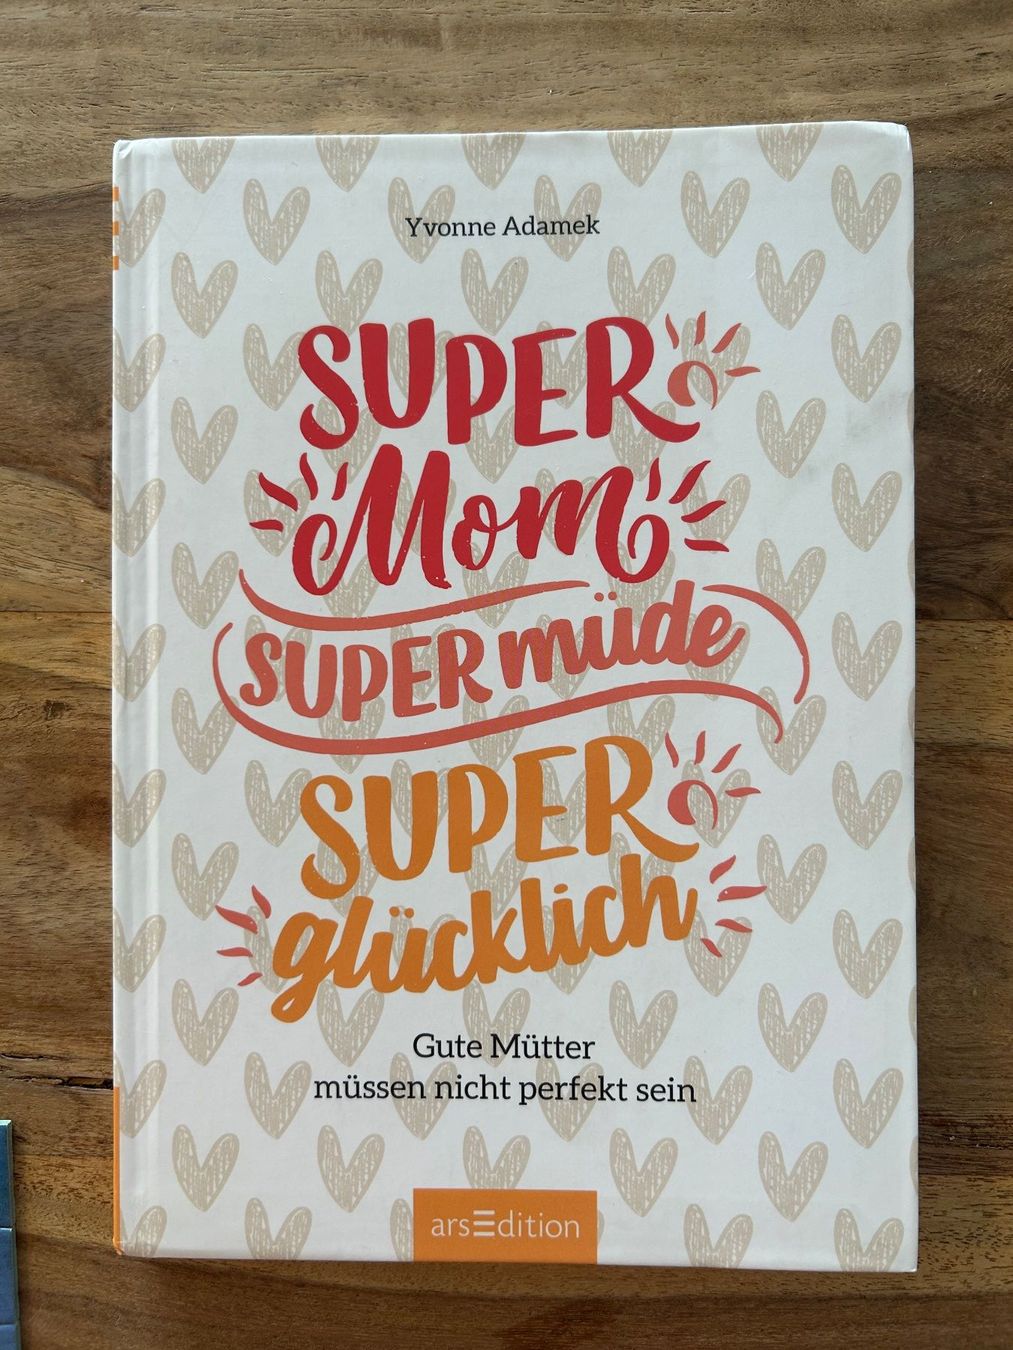 Yvonne Adamek
SUPER
Mom
SUPER müde
SUPER
glücklich
Gute Mütter
müssen nicht perfekt sein
arsEdition